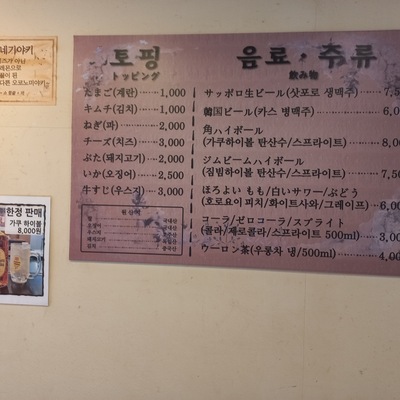 네기야키
토핑
トッピング
たまご(계란) 1,000
キムチ(김치) 1,000
ねぎ(파) 2,000
チーズ(치즈) 3,000
ぶた(돼지고기) 2,000
いか(오징어) 2,500
牛すじ(우스지) 3,000
원산지
음료·주류
飲み物
サッポロ生ビール(삿포로 생맥주)
韓国ビール(카스 병맥주) 6,0
角ハイボール
(가쿠하이볼 탄산수/스프라이트) 8,0
ジムビームハイボール
(짐빔하이볼 탄산수/스프라이트) 7,50
ほろよい もも/白いサワー/ぶどう
(호로요이 피치/화이트사와/그레이프) 6,00
コーラ/ゼロコーラ/スプライト
(콜라/제로콜라/스프라이트 500ml) 3,00
ウーロン茶(우롱차 냉/500ml) 4,00
한정 판매
가쿠 하이볼
8,000원